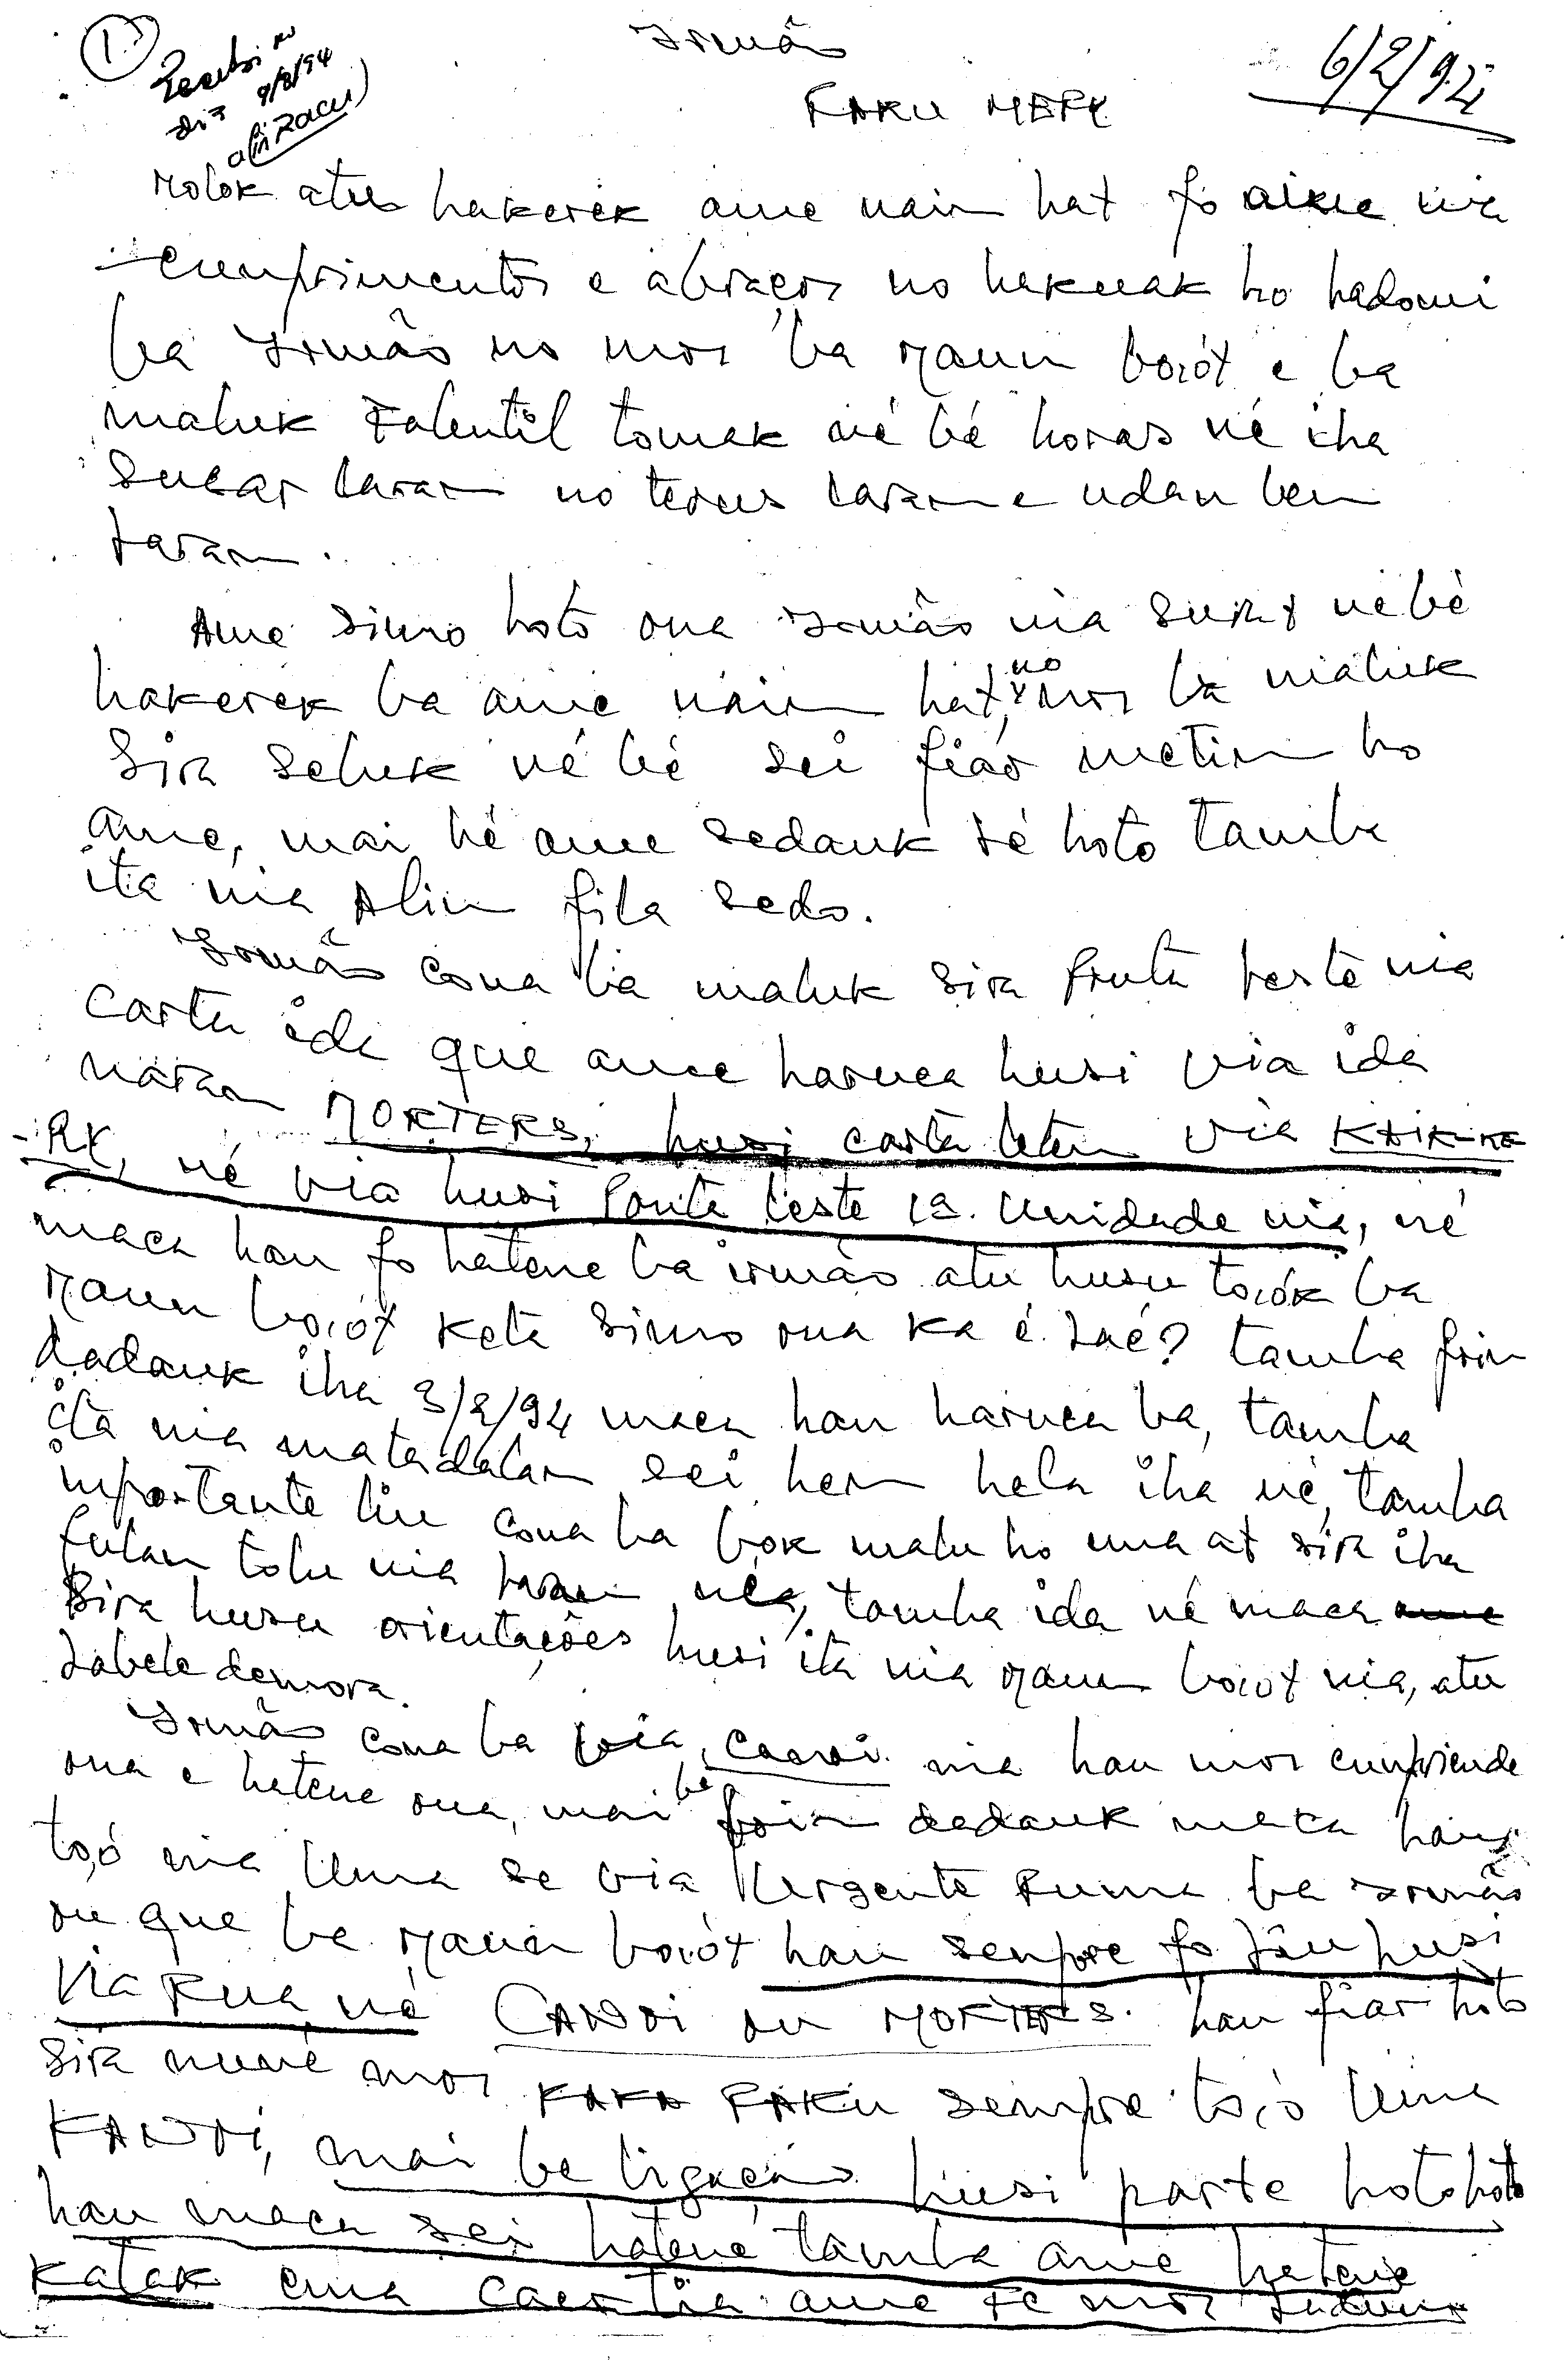 1.)
Recebi no
dia 9/8/94
Irmão
6/2/94
FAKU MERY
Molok atu hakerek ame nain hat fo nia
cumprimentos e abraços no hakuak ho hadomi
ba Irmão no mos ba Maun boiót e ba
maluk Falentil tomak né bé horas né iha
sucar laran no terus laran e udan ben
laran.
Ame simo hoto ona Irmão nia surat nebé
hakerek ba ame nain hat, no mos ba maluk
Sira seluk né bé sei fiar metin ho
ame, mai bé ame sedauk lé hoto tamba
ita nia Alin fila sedo.
Irmão cona ba maluk sira Ponta leste nia
carta ida que ame haruca husi via ida
naran MORTERS, husi carta leten via KAIK-KE
-RK, né via husi Ponta leste 1ª. Unidade nia, né
maca hau fo hatene ba irmão atu husu toiók ba
Maun boiót keta simo ona ka é laé? tamba foin
dadauk iha 3/2/94 maca hau haruca ba, tamba
ita nia matadalan sei hein hela iha né, tamba
importante liu cona ba bok malu ho uma at sira iha
fulan tolu nia laran néa, tamba ida né maca
Sira husu orientações husi ita nia Maun boiot nia, atu
labele demora.
Irmão cona ba via, nia hau mos cumpriende
ona e hatene ona, mai bé foin dadauk maca hau
toió nia Uma se via Urgente Ruma ba Irmão
ou que ba Maun boiót hau sempre fo dău husi
Via Rua né CANDI ou MORTERS. hau fiar hoto
sira nuné mos FAKU sempre toió Uma
KANDI, mai be ligação husi parte hotohoto
hau maca sei hatene tamba ame hatene
katak ema caer tia ame